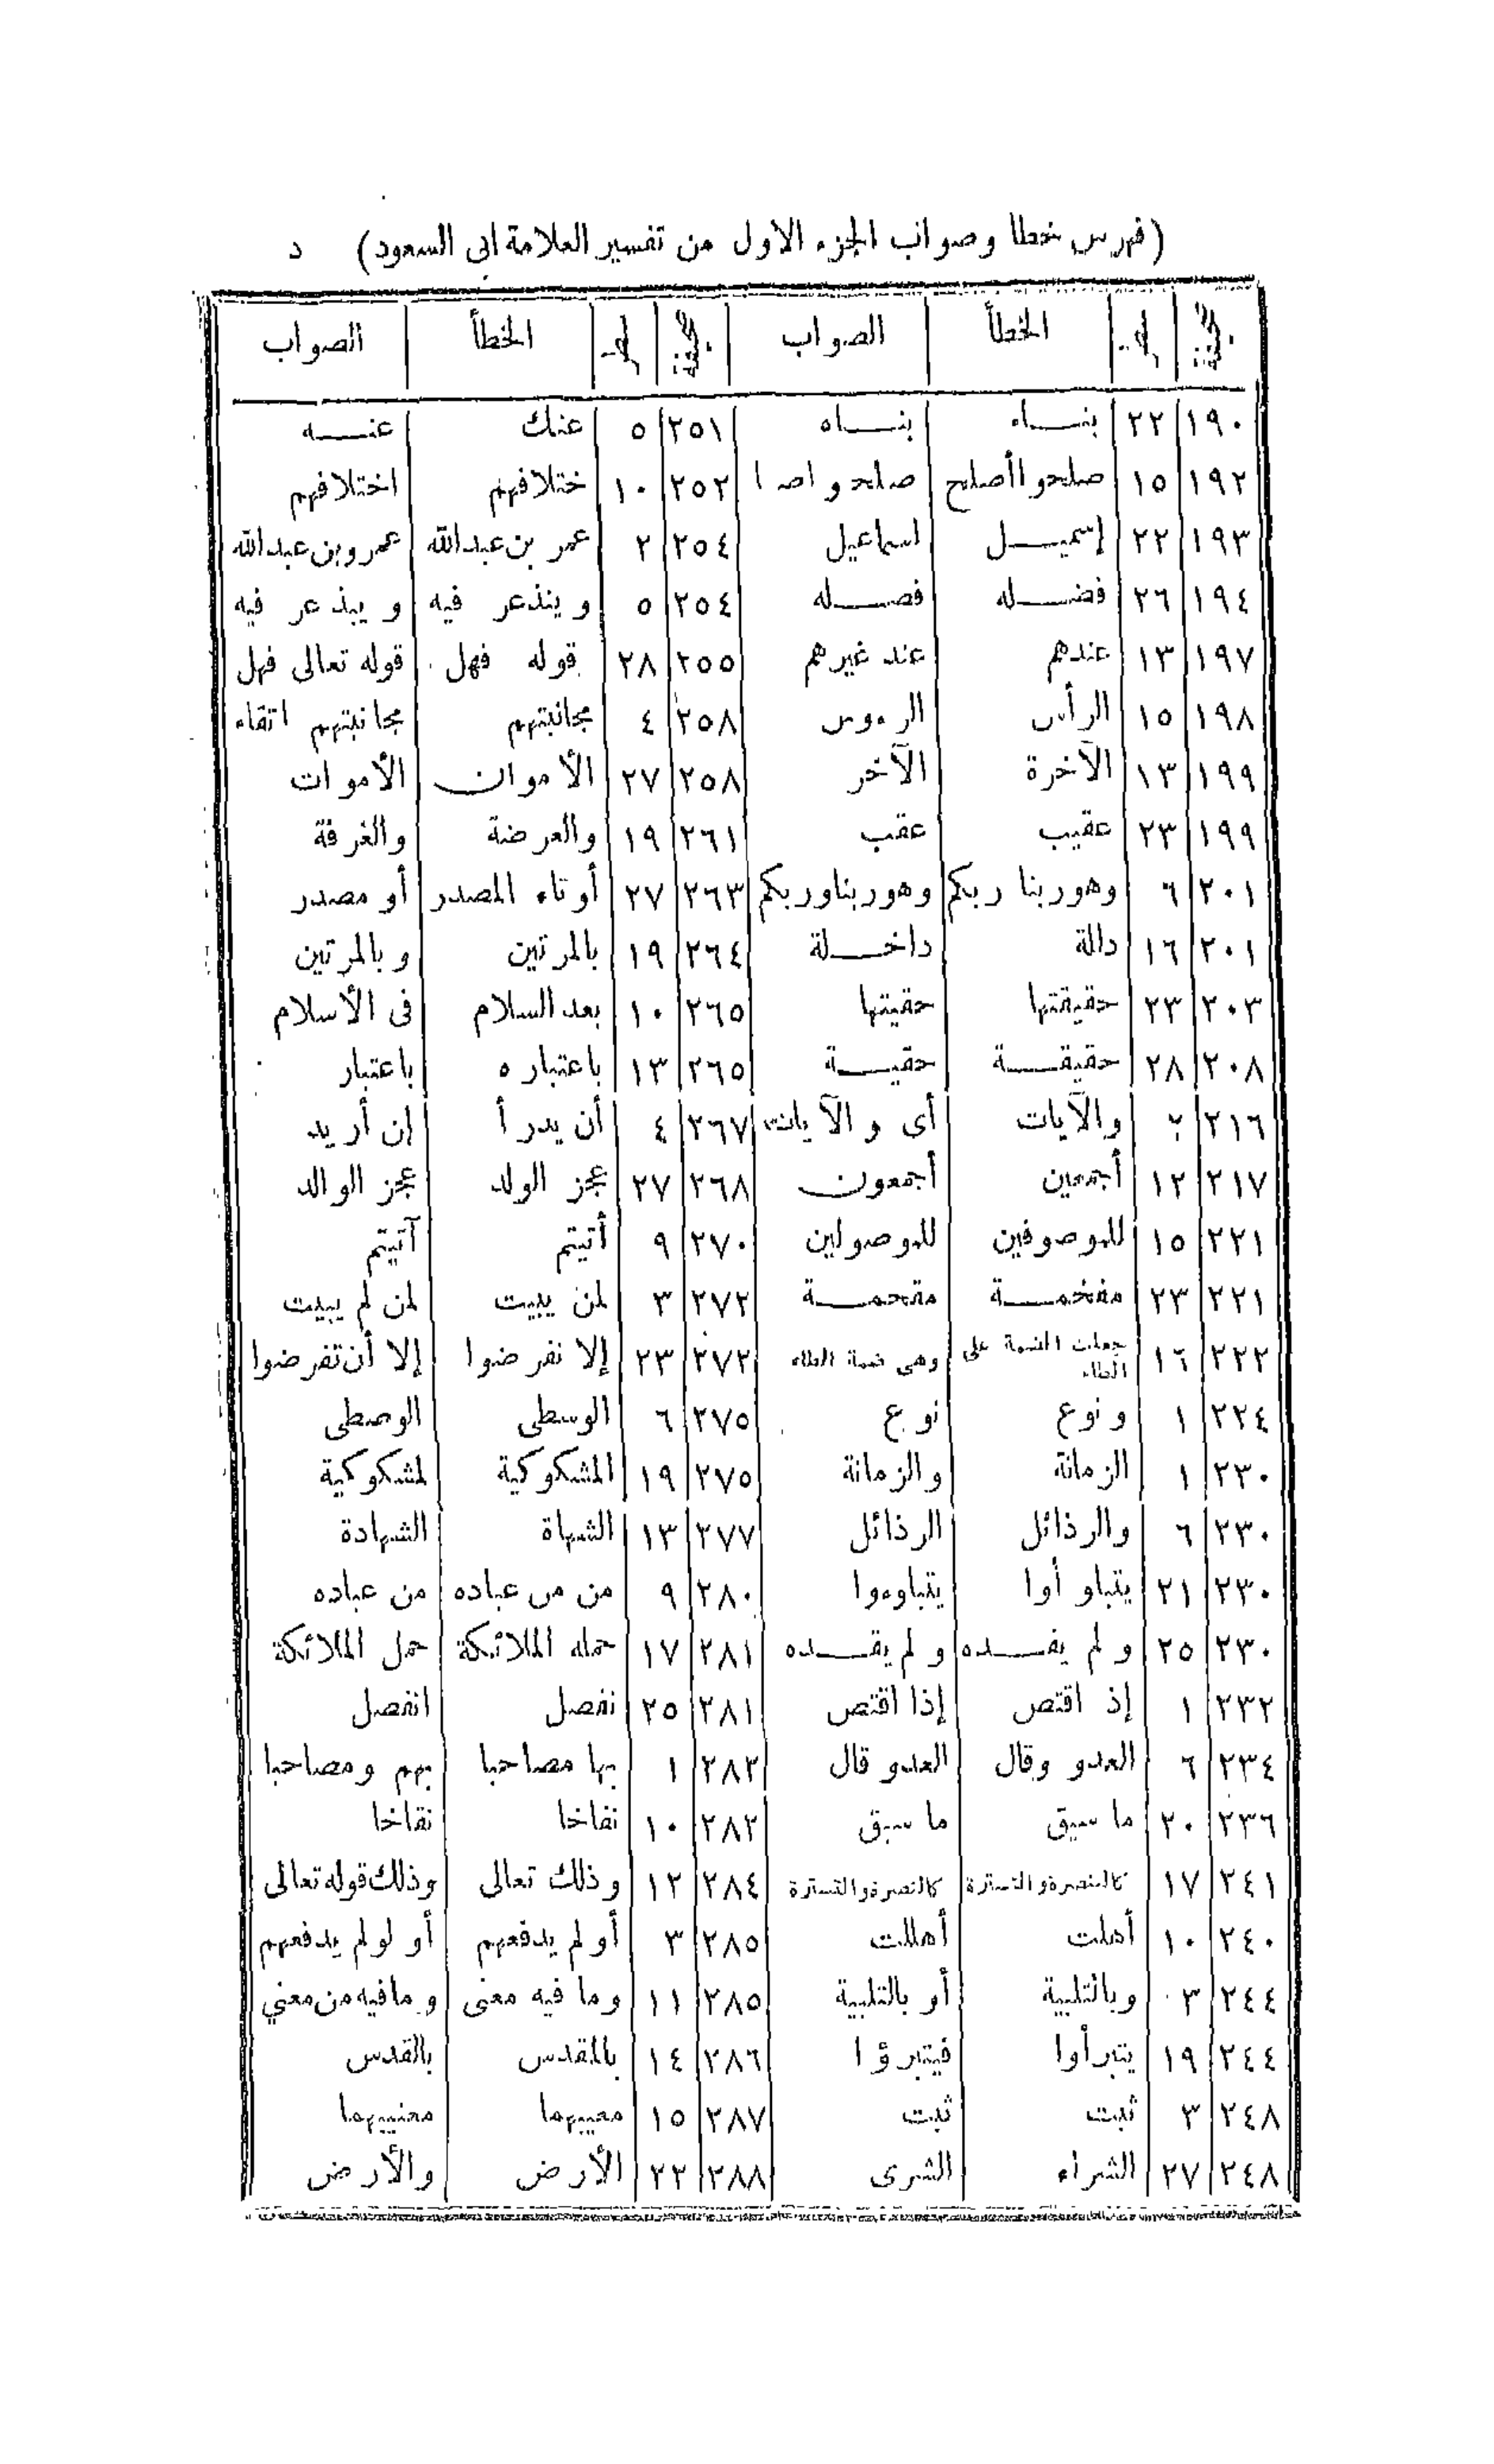 (فهرس خطا وصواب الجزء الاول من تفسير العلامة ابى السعود) د
صحيفة الخطأ الصواب صحيفة الخطأ الصواب
١٩٠ ٢٢ بنساه بنساه ٢٥١ ٥ عنك عنه
١٩٢ ١٥ صلحوا أصلح صلحوا ٢٥٢ ١٠ ختلافهم اختلافهم
١٩٣ ٢٢ إسمعيل اسماعيل ٢٥٤ ٢ عمر بن عبدالله عمرو بن عبدالله
١٩٤ ٢٦ فضله فصله ٢٥٤ ٥ وينذعر فيه ويبذعر فيه
١٩٧ ١٣ عندهم عند غيرهم ٢٥٥ ٢٨ قوله فهل قوله تعالى فهل
١٩٨ ١٥ الرأس الرءوس ٢٥٨ ٤ مجانبتهم مجانبتهم اتقاء
١٩٩ ١٣ الآخرة الآخر ٢٥٨ ٢٧ الأموان الأموات
١٩٩ ٢٣ عقيب عقب ٢٦١ ١٩ والعرضة والغرفة
٢٠١ ٦ وهوربنا ربكم وهوربناوربكم ٢٦٣ ٢٧ أوتاء المصدر أو مصدر
٢٠١ ١٦ دالة داخلة ٢٦٤ ١٩ بالمرتين وبالمرتين
٢٠٣ ٢٣ حقيقتها حقيتها ٢٦٥ ١٠ بعد السلام فى الأسلام
٢٠٨ ٢٨ حقيقة حقيسة ٢٦٥ ١٣ باعتباره باعتبار
٢١٦ والآيات أى والآيات ٢٦٧ ٤ أن يدرأ إن أريد
٢١٧ ١٢ أجمعين أجمعون ٢٦٨ ٢٧ عجز الولد عجز الوالد
٢٢١ ١٥ للموصوفين للموصولين ٢٧٠ ٩ أتيتم آتيتم
٢٢١ ٢٣ مفخمة مقحمة ٢٧٢ ٣ لمن يبيت لمن لم يبيت
٢٢٢ ١٦ جعلت الضمة على الطاء وهى ضمة الطاء ٢٧٢ ٢٣ إلا نفرضوا إلا أن تفرضوا
٢٢٤ ١ ونوع نوع ٢٧٥ ٦ الوسطى الوصطى
٢٣٠ ١ الزمانة والزمانة ٢٧٥ ١٩ المشكوكية لمشكوكية
٢٣٠ ٦ والرذائل الرذائل ٢٧٧ ١٣ الشهاة الشهادة
٢٣٠ ٢١ يتباوأوا يتباوءوا ٢٨٠ ٩ من من عباده من عباده
٢٣٠ ٢٥ ولم يفسده ولم يقسده ٢٨١ ١٧ حمله الملائكة حمل الملائكة
٢٣٢ ١ إذ اقتص إذا اقتص ٢٨١ ٢٥ نفصل انفصل
٢٣٤ ٦ العدو وقال العدو قال ٢٨٢ ١ بها مصاحبا بهم ومصاحبا
٢٣٦ ٢٠ ما سيق ما سبق ٢٨٢ ١٠ نفاخا نقاخا
٢٤١ ١٧ كالنصرة والتسترة ٢٨٤ ١٢ وذلك تعالى وذلك قوله تعالى
٢٤٠ ١٠ أهلت أهللت ٢٨٥ ٣ أولم يدفعهم أو لو لم يدفعهم
٢٤٤ ٣ وبالتلبية أو بالتلبية ٢٨٥ ١١ وما فيه معنى ومافيه من معنى
٢٤٤ ١٩ يتبرأوا فيتبرؤا ٢٨٦ ١٤ بالمقدس بالقدس
٢٤٨ ٣ ثبت ثبت ٢٨٧ ١٥ معيبهما معنييهما
٢٤٨ ٢٧ الشراء الشرى ٢٨٨ ٢٢ الأرض والأرض